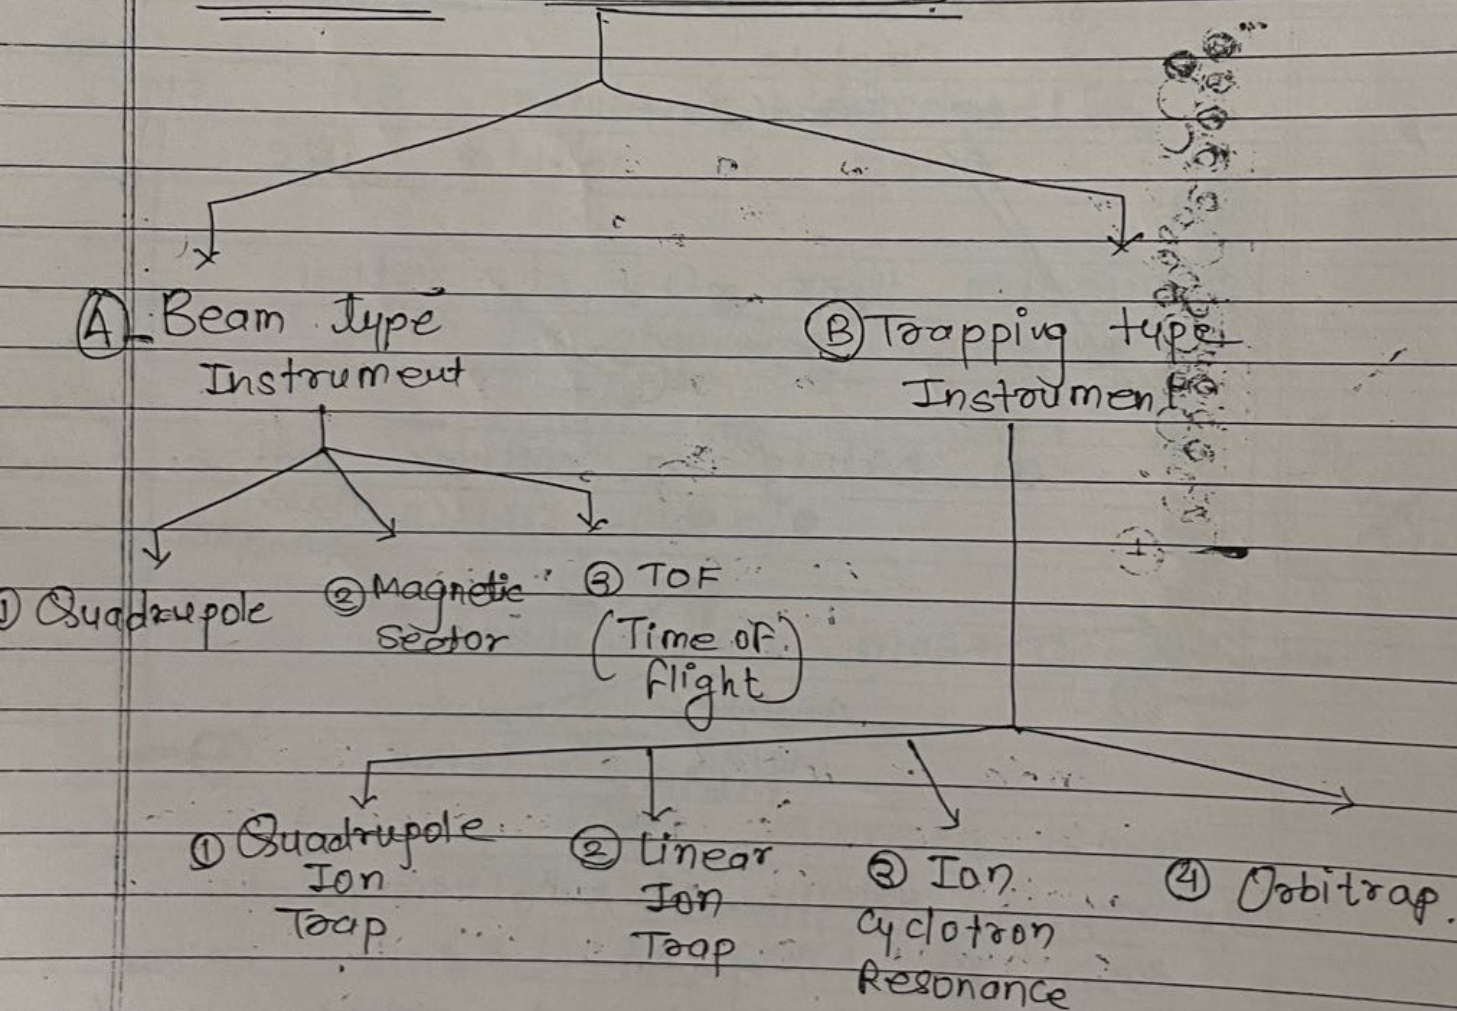 Ⓐ Beam type
Instrument
Ⓑ Trapping type
Instrument
① Quadrupole
② Magnetic
Sector
③ TOF
(Time of
flight)
① Quadrupole
Ion
Trap
② Linear
Ion
Trap
③ Ion
Cyclotron
Resonance
④ Orbitrap.